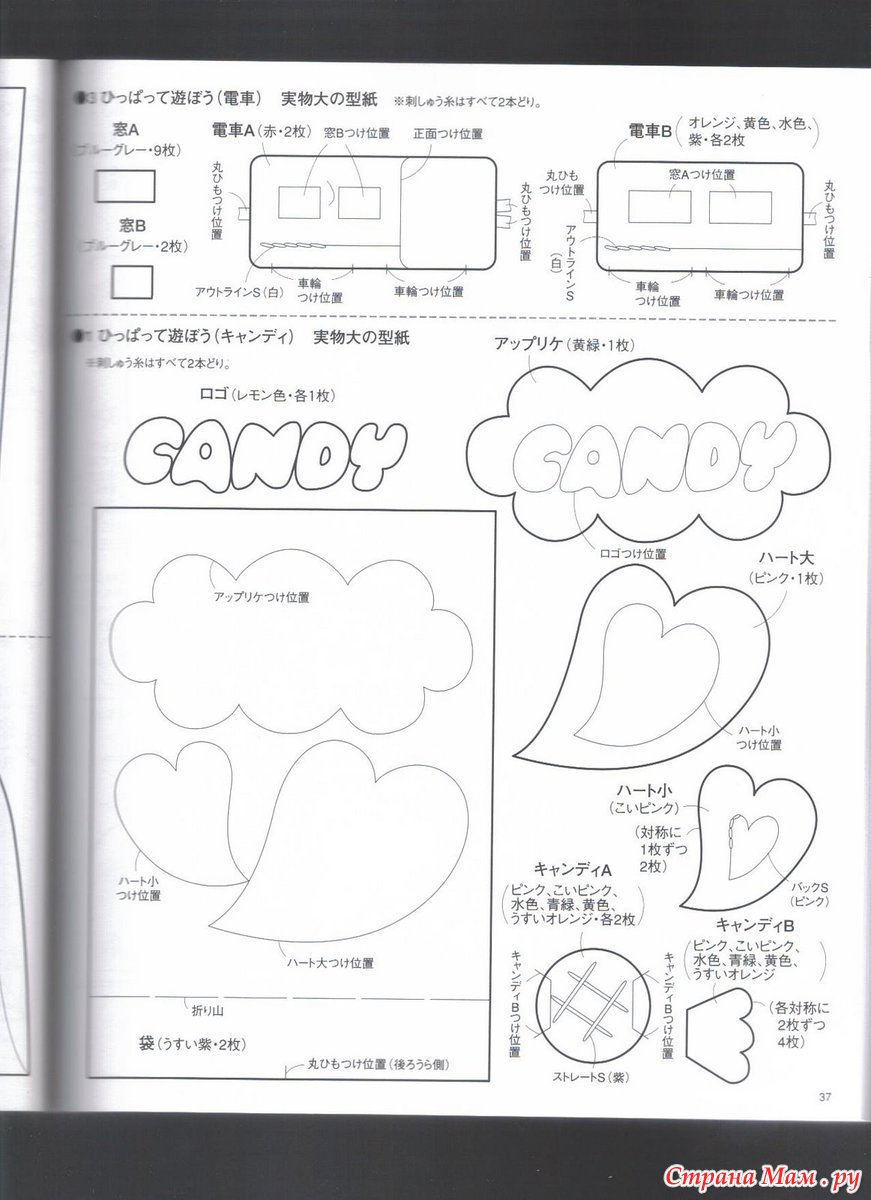 3 ひっぱって遊ぼう(電車) 実物大の型紙 ※刺しゅう糸はすべて2本どり。
窓A
ブルーグレー・9枚)
窓B
ブルーグレー・2枚)
電車A(赤・2枚)
窓Bつけ位置
正面つけ位置
丸ひもつけ位置
丸ひもつけ位置
アウトラインS(白)
車輪
つけ位置
車輪つけ位置
電車B(オレンジ、黄色、水色、
紫・各2枚)
丸ひも
つけ位置
窓Aつけ位置
丸ひもつけ位置
アウトラインS
(白)
車輪
つけ位置
車輪つけ位置
1 ひっぱって遊ぼう(キャンディ) 実物大の型紙
※刺しゅう糸はすべて2本どり。
ロゴ(レモン色・各1枚)
CANDY
アップリケ(黄緑・1枚)
CANDY
ロゴつけ位置
アップリケつけ位置
ハート小
つけ位置
ハート大つけ位置
折り山
袋(うすい紫・2枚)
丸ひもつけ位置(後ろうら側)
ハート大
(ピンク・1枚)
ハート小
つけ位置
ハート小
(こいピンク)
(対称に
1枚ずつ
2枚)
バックS
(ピンク)
キャンディA
(ピンク、こいピンク、
水色、青緑、黄色、
うすいオレンジ・各2枚)
キャンディBつけ位置
キャンディBつけ位置
ストレートS(紫)
キャンディB
(ピンク、こいピンク、
水色、青緑、黄色、
うすいオレンジ)
(各対称に
2枚ずつ
4枚)
37
Страна Мам.ру